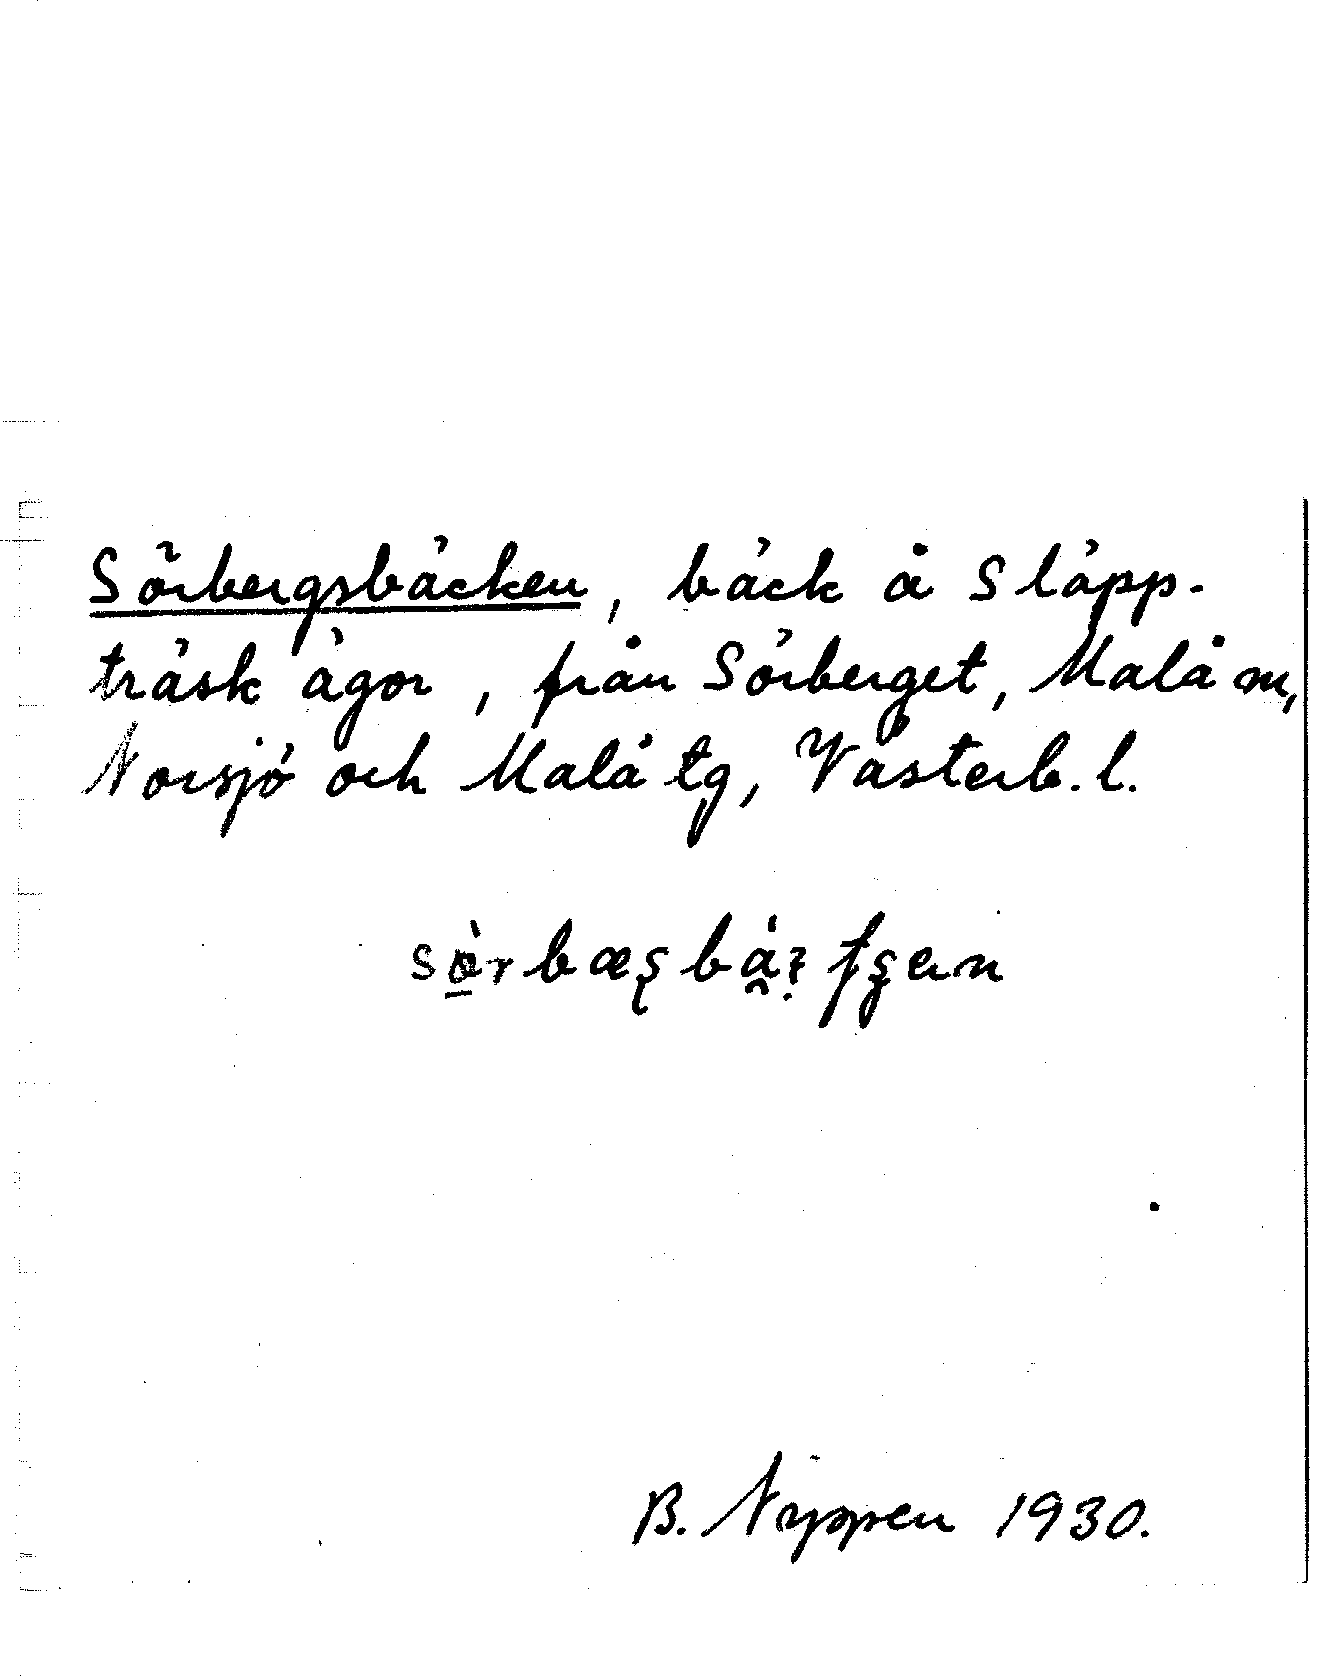 Sörbergsbäcken, bäck å Släpp-
träsk ägor, från Sörberget, Malå m,
Norsjö och Malå tg, Västerb. l.
B. Nyppen 1930.